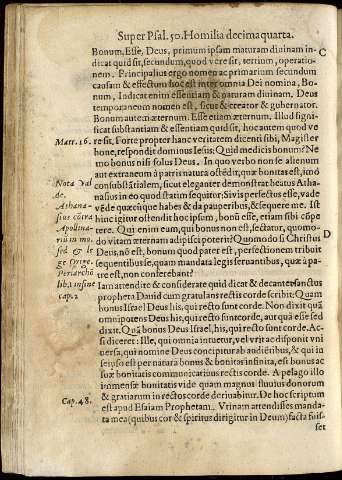 Super Psal. 50. Homilia decimaquarta.
Bonum, Esse, Deus, primum ipsam naturam diuinam in-
dicat quid sit, secundum, quod vere sit, tertium, operatio-
nem. Principalius ergo nomen ac primarium secundum
causam & effectum hoc est inter omnia Dei nomina, Bo-
num, Indicat enim essentiam & naturam diuinam. Deus
temporaneum nomen est, sicut & creator & gubernator.
Bonum autem æternum. Esse etiam æternum. Illud signi-
ficat substantiam & essentiam quid sit, hoc autem quod ve
re sit. Forte propter hanc veritatem dicenti sibi, Magister
bone, respondit dominus Iesus; Quid me dicis bonum? Ne
mo bonus nisi solus Deus. In quo verbo non se alienum
aut extraneum à patris natura ostēdit, quæ bonitas est, imò
consubstātialem, sicut eleganter demonstrat beatus Atha-
nasius in eo quod statim sequitur. Si vis perfectus esse, vade
vēde quæcūque habes & da pauperibus, & sequere me. Ist
hinc igitur ostendit hoc ipsum, bonū esse, etiam sibi cōpe
tere. Qui enim eum, qui bonus non est, sectatur, quomo-
do vitam æternam adipisci poterit? Quomodo si Christus
Deus, nō est, bonum quod pater est, perfectionem tribuit
sequentibus se, quam mandata legis seruantibus, quæ à pa-
tre est, non conferebant?
Iam attendite & considerate quid dicat & decantet sanctus
propheta Dauid cum gratulans rectis corde scribit: Quam
bonus Israel Deus his, qui recto sunt corde. Non dixit quā
omnipotens Deus his, qui recto sunt corde, aut quā esse sed
dixit. Quā bonus Deus Israel, his, qui recto sunt corde. Ac
si diceret: Ille, qui omnia intuetur, vel vt ac disponit vni
uersa, qui nomine Deus concipitur ab auditibus, & qui in
seipso est per natura bonus & bonitos infinita, est bonus ac
suæ bonitatis communicatiuus rectis corde. A pelago illo
immensæ bonitatis vide quam magnus fluuius donorum
& gratiarum in rectos corde deriuabitur. De hoc scriptum
est apud Esaiam Prophetam. Vtinam attendisses manda-
ta mea (quibus cor & spiritus dirigitur in Deum) facta fuis-
set
C
D
Matt. 16.
Nota Val
de.
Athana-
sius cōtra
Apollina-
rium in mo.
sed & le
ge Grego.
Petriarcho
lib. 1. in fine
cap. 2
Cap. 48.